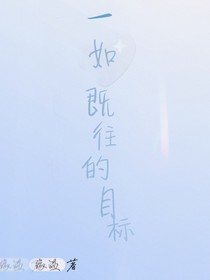 一如既往的目标
著